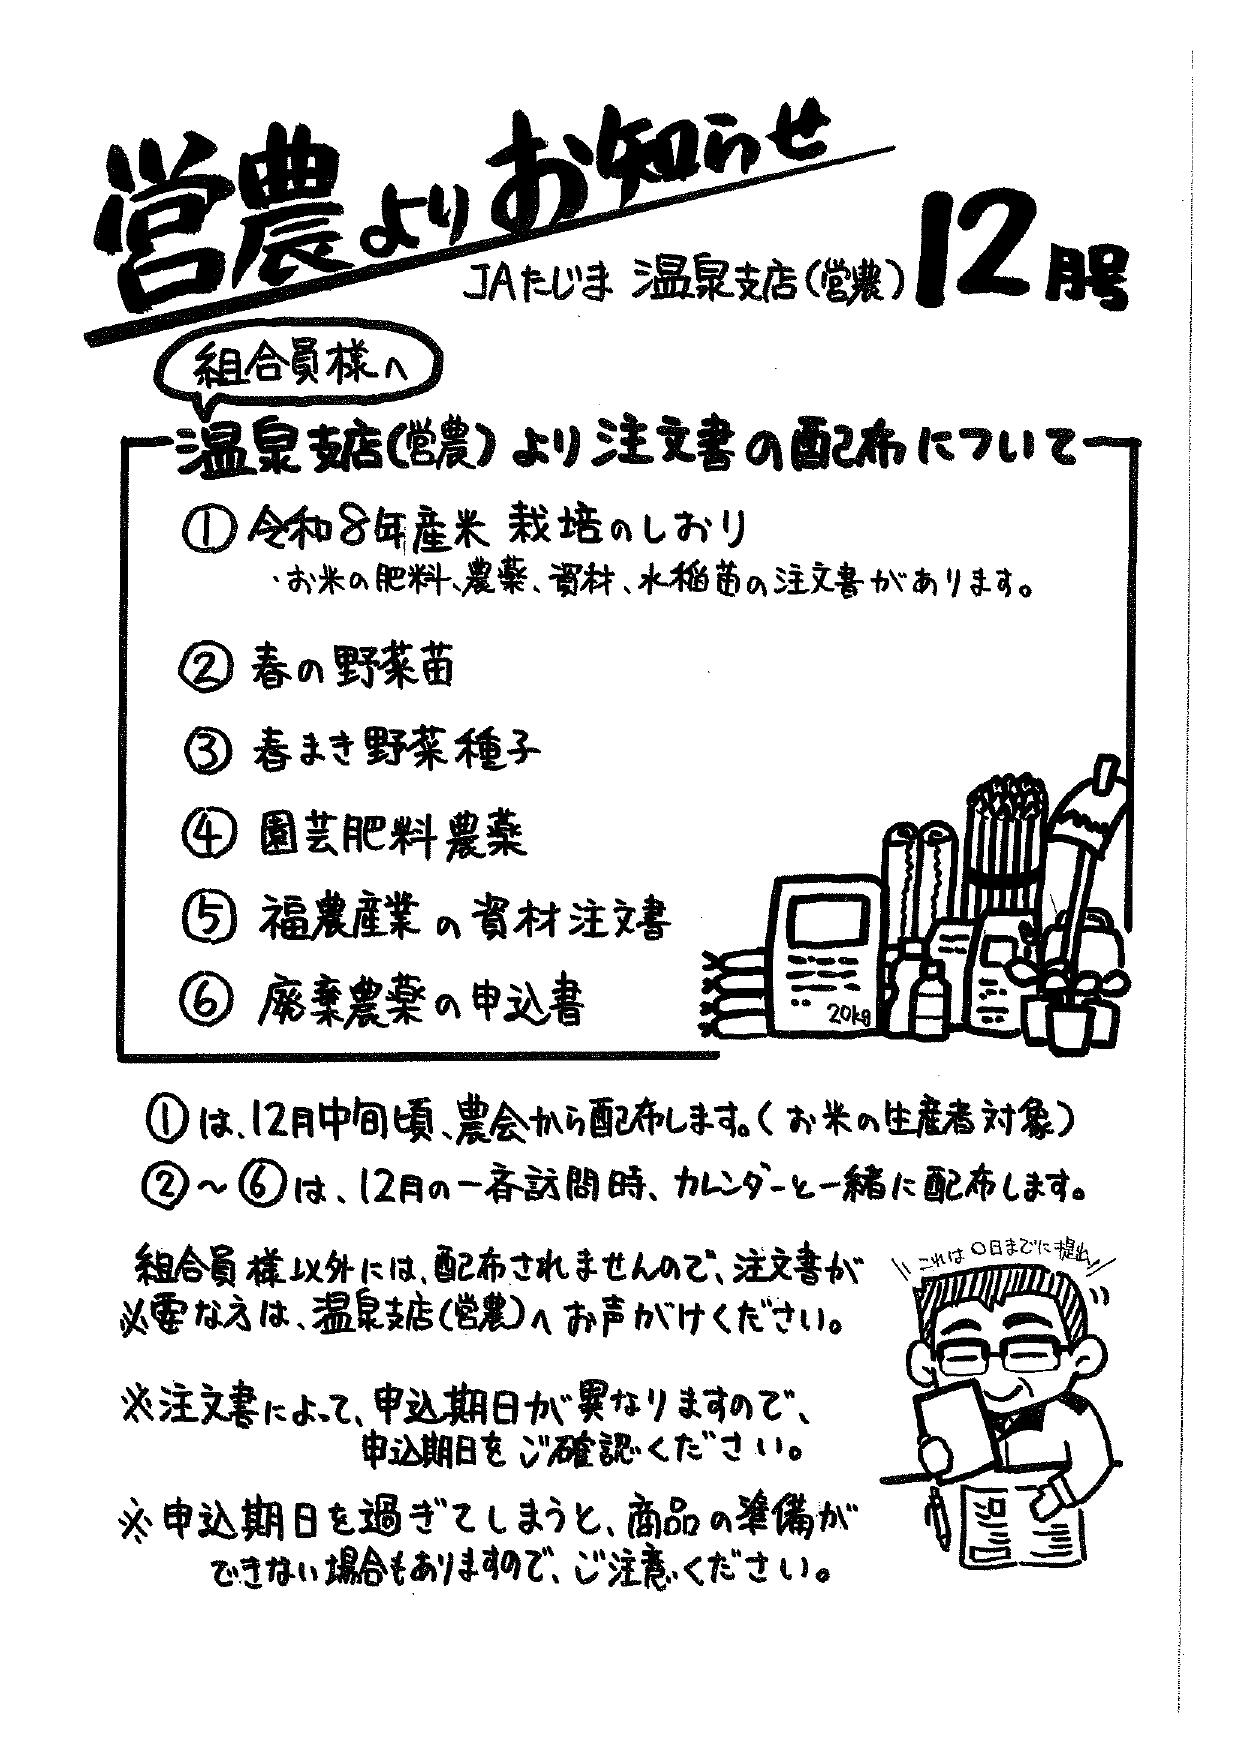 営農よりお知らせ
JAたじま 温泉支店(営農) 12月号
組合員様へ
温泉支店(営農)より注文書の配布について
① 令和8年産米 栽培のしおり
・お米の肥料、農薬、資材、水稲苗の注文書があります。
② 春の野菜苗
③ 春まき野菜種子
④ 園芸肥料農薬
⑤ 福農産業の資材注文書
⑥ 廃棄農薬の申込書
20kg
①は、12月中旬頃、農会から配布します。(お米の生産者対象)
②～⑥は、12月の一斉訪問時、カレンダーと一緒に配布します。
組合員様以外には、配布されませんので、注文書が
必要な方は、温泉支店(営農)へお声がけください。
これは〇日までに提出
※注文書によって、申込期日が異なりますので、
申込期日をご確認ください。
※申込期日を過ぎてしまうと、商品の準備が
できない場合もありますので、ご注意ください。